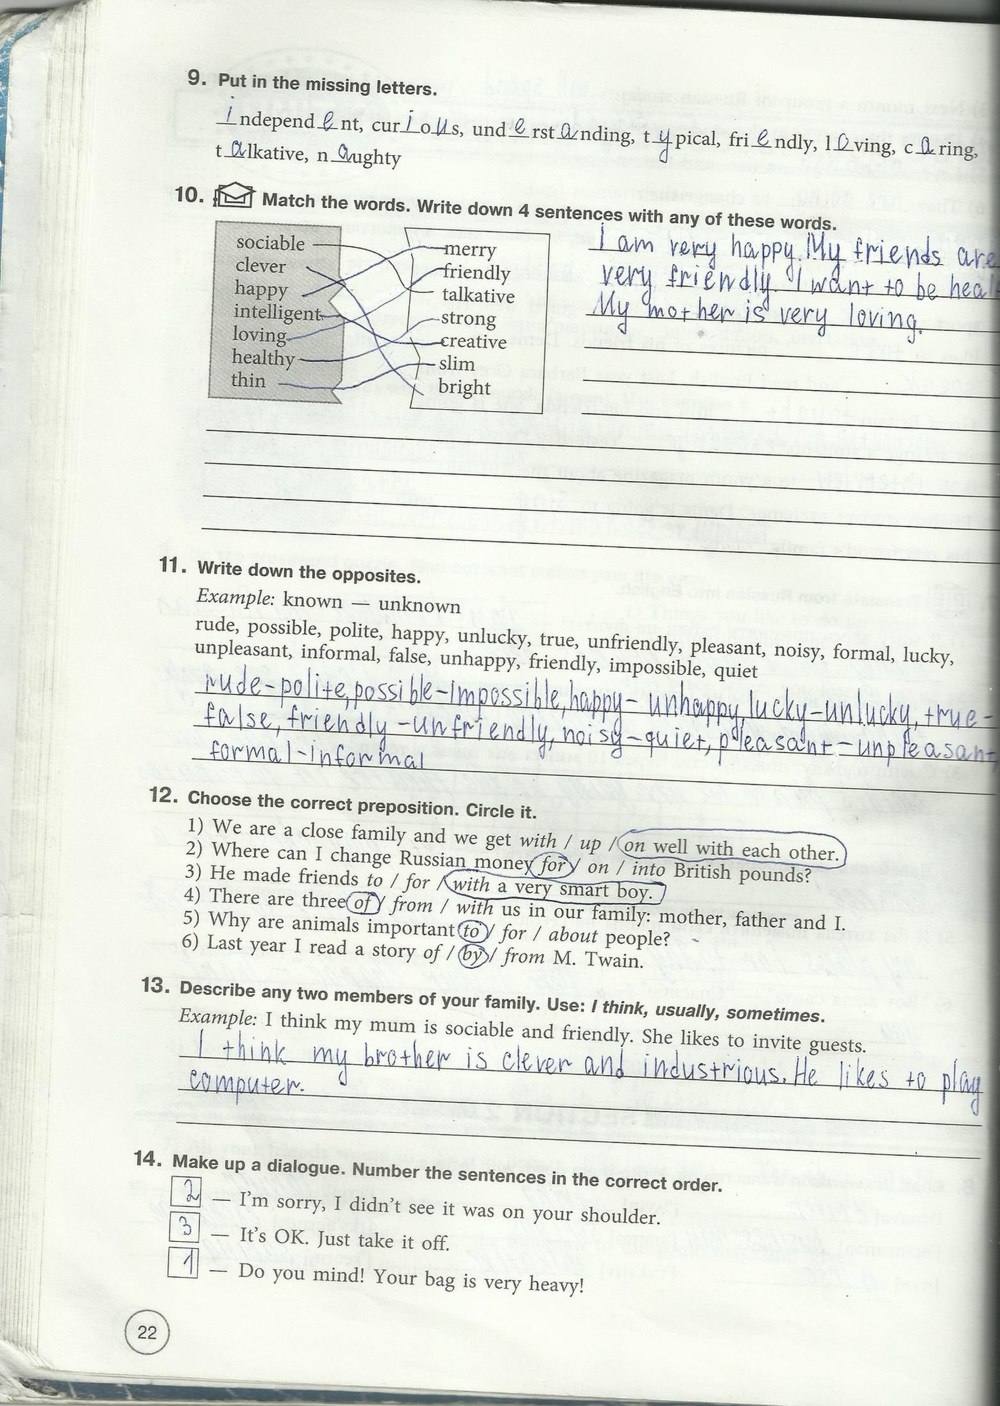 9. Put in the missing letters.
independent, curious, understanding, typical, friendly, loving, caring,
talkative, naughty
10. Match the words. Write down 4 sentences with any of these words.
sociable
clever
happy
intelligent
loving
healthy
thin
merry
friendly
talkative
strong
creative
slim
bright
I am very happy. My friends are
very friendly. I want to be heal
My mother is very loving.
11. Write down the opposites.
Example: known — unknown
rude, possible, polite, happy, unlucky, true, unfriendly, pleasant, noisy, formal, lucky,
unpleasant, informal, false, unhappy, friendly, impossible, quiet
rude-polite, possible-impossible, happy-unhappy, lucky-unlucky, true-
false, friendly-unfriendly, noisy-quiet, pleasant-unpleasant
formal-informal
12. Choose the correct preposition. Circle it.
1) We are a close family and we get with / up / on well with each other.
2) Where can I change Russian money for / on / into British pounds?
3) He made friends to / for / with a very smart boy.
4) There are three of / from / with us in our family: mother, father and I.
5) Why are animals important to / for / about people?
6) Last year I read a story of / by / from M. Twain.
13. Describe any two members of your family. Use: I think, usually, sometimes.
Example: I think my mum is sociable and friendly. She likes to invite guests.
I think my brother is clever and industrious. He likes to play
computer.
14. Make up a dialogue. Number the sentences in the correct order.
2 — I'm sorry, I didn't see it was on your shoulder.
3 — It's OK. Just take it off.
1 — Do you mind! Your bag is very heavy!
22